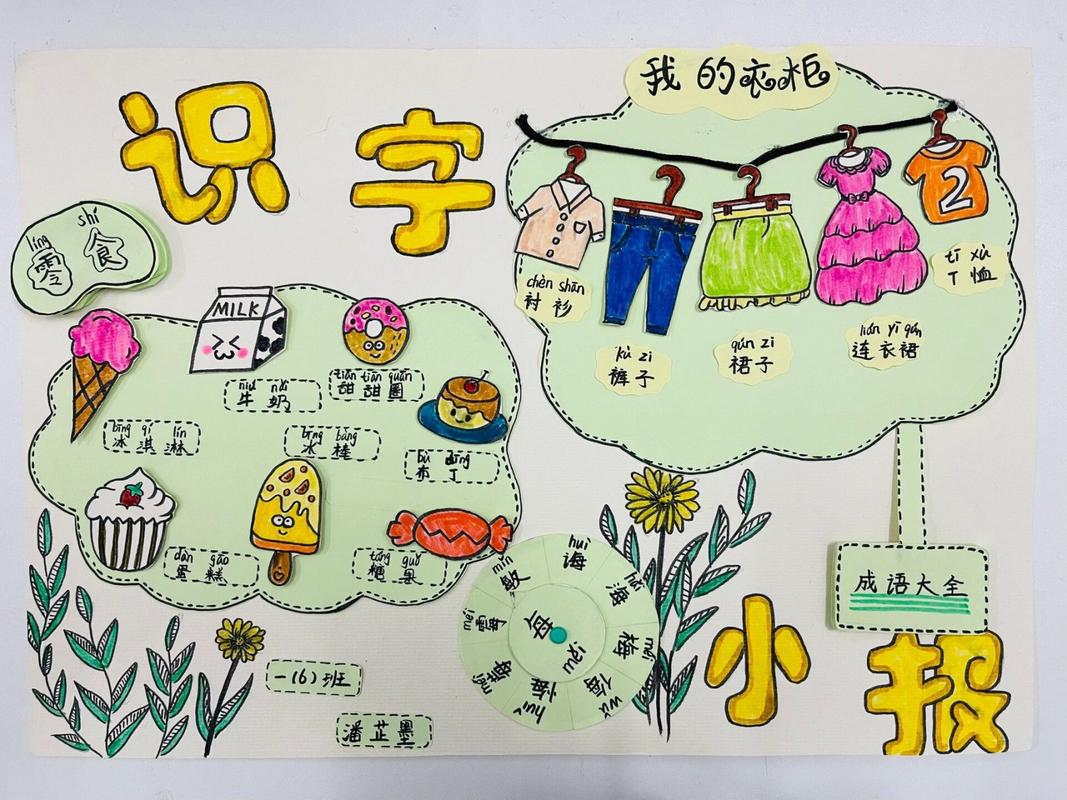 识字
我的衣柜
shí
líng
零食
MILK
2
chèn shān
衬衫
kù zi
裤子
qún zi
裙子
lián yī qún
连衣裙
tī xù
T恤
niú nǎi
牛奶
tián tián quān
甜甜圈
bīng qí lín
冰淇淋
bīng bàng
冰棒
bù dīng
布丁
dàn gāo
蛋糕
táng guǒ
糖果
mǐn
敏
huì
诲
hǎi
海
méi
梅
wǔ
侮
huǐ
悔
méi
méi
霉
成语大全
一(6)班
潘芷墨
小报